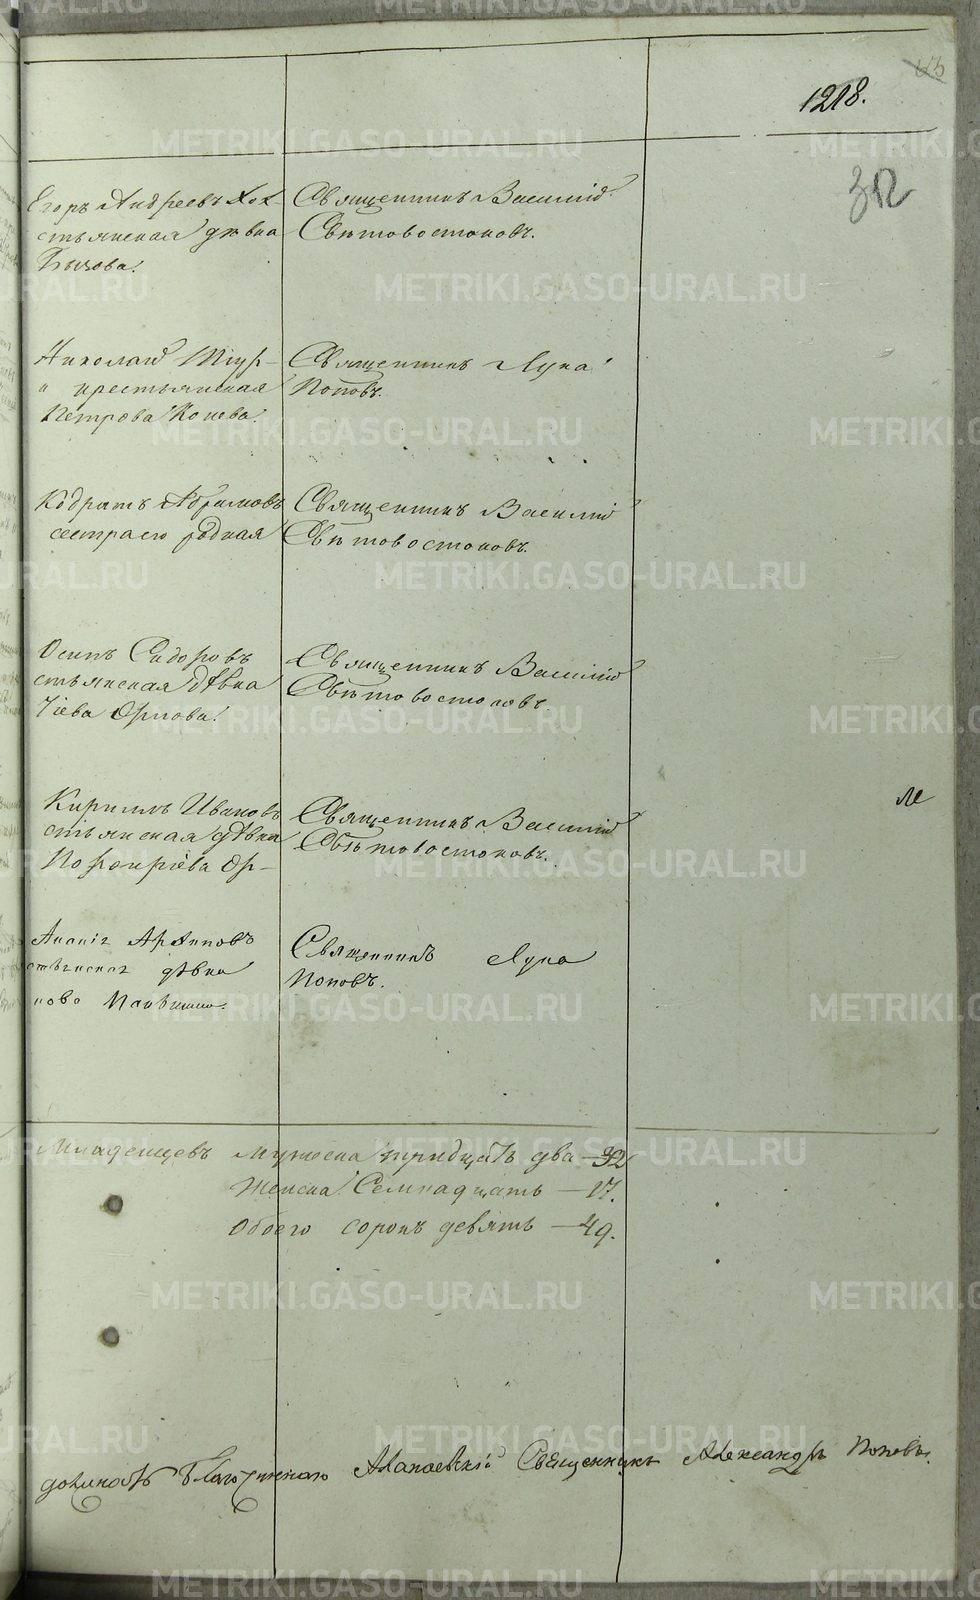 1218.
312
Егоръ Андреевъ Хох-
стьянская дѣвка
Бызова.
Священникъ Василій
Свѣтовостоковъ.
Николай
и крестьянская
Петрова Конева.
Священникъ Лука
Поповъ.
Кодратъ Абрамовъ
сестра его родная
Священникъ Василій
Свѣтовостоковъ.
Осипъ Сидоровъ
стьянская дѣвка
Орлова.
Священникъ Василій
Свѣтовостоковъ.
Кирилъ Ивановъ
стьянская дѣвка
Порфиріева Ор-
Священникъ Василій
Свѣтовостоковъ.
Ананіи Архиповъ
дѣвка
Священникъ Лука
Поповъ.
Младенцевъ мужеска тридцать два — 32
Женска Семнадцать — 17.
Обоего сорокъ девять — 49.
должность Благочиннаго Алапаевскій Священникъ Александръ Поповъ.
METRIKI.GASO-URAL.RU